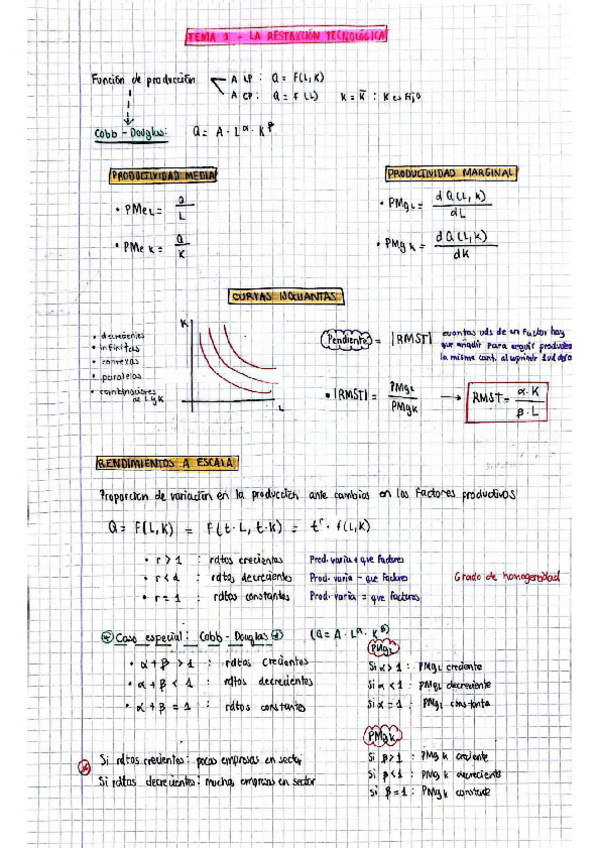 TEMA 1 - LA RESTRICCIÓN TECNOLÓGICA
Función de producción
A LP : Q = F(L,K)
A CP : Q = F (L) K = K̅ : K es fijo
Cobb - Douglas: Q = A · L^α · K^β
PRODUCTIVIDAD MEDIA
• PMe L = Q / L
• PMe K = Q / K
PRODUCTIVIDAD MARGINAL
• PMg L = d Q (L, K) / dL
• PMg K = d Q (L, K) / dK
CURVAS ISOCUANTAS
• decrecientes
• infinitas
• convexas
• paralelas
• combinaciones
de L y K
K
L
Pendiente = |RMST|
cuantas uds de un factor hay
que añadir para seguir produciendo
la misma cant. al suprimir 1 ud de
• |RMST| = PMg L / PMg K → RMST = α · K / β · L
RENDIMIENTOS A ESCALA
Proporcion de variación en la producción ante cambios en los factores productivos
Q = F(L,K) = F(t · L, t · K) = t^r · f(L,K)
• r > 1 : rdtos crecientes Prod. varia + que factores
• r < 1 : rdtos decrecientes Prod. varia - que factores
• r = 1 : rdtos constantes Prod. varia = que factores
Grado de homogeneidad
Caso especial: Cobb - Douglas (Q = A · L^α · K^β)
• α + β > 1 : rdtos crecientes
• α + β < 1 : rdtos decrecientes
• α + β = 1 : rdtos constantes
PMg L
Si α > 1 : PMg L creciente
Si α < 1 : PMg L decreciente
Si α = 1 : PMg L constante
PMg K
Si β > 1 : PMg K creciente
Si β < 1 : PMg K decreciente
Si β = 1 : PMg K constante
Si rdtos crecientes: pocas empresas en sector
Si rdtos decrecientes: muchas empresas en sector